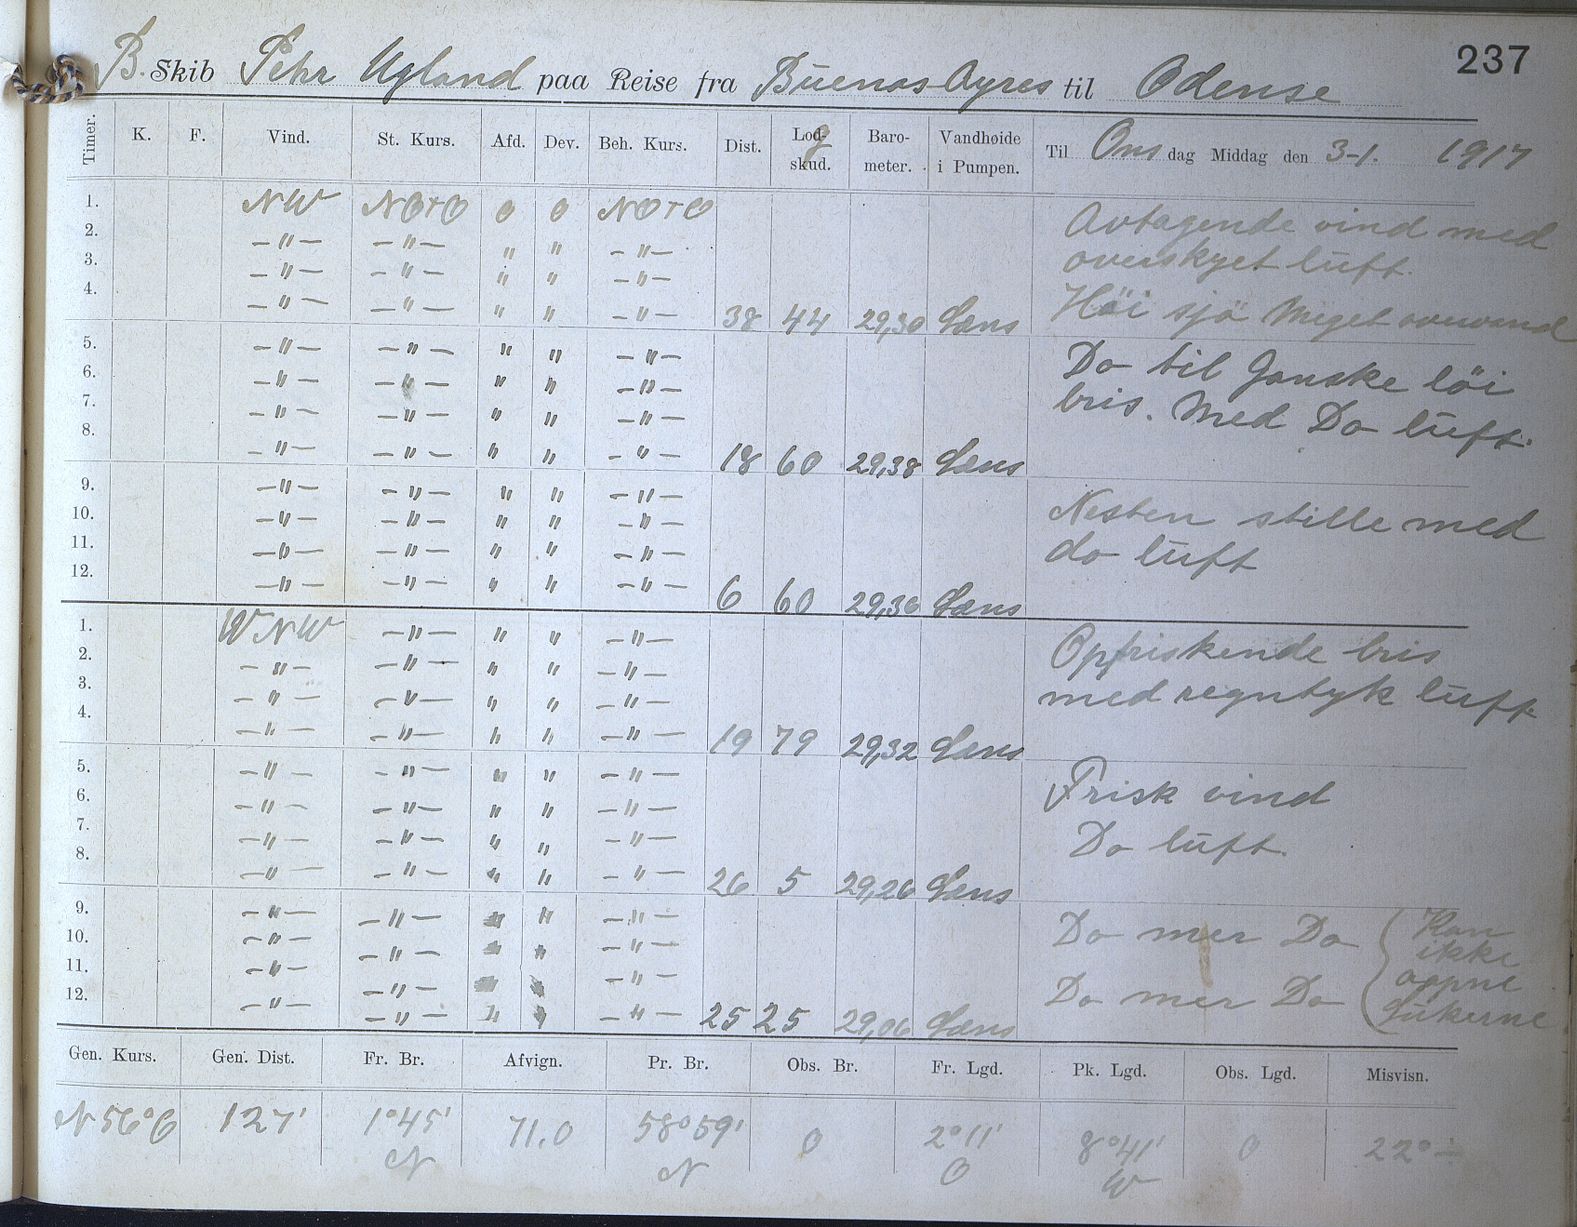 237
B. Skib Pehr Ugland paa Reise fra Buenos-Ayres til Odense
Timer. K. F. Vind. St. Kurs. Afd. Dev. Beh. Kurs. Dist. Lod-skud. Baro-meter. Vandhøide i Pumpen. Til Onsdag Middag den 3-1. 1917
1. NW NOtO 0 0 NOtO Avtagende vind med
2. -"- -"- " " -"- overskyet luft.
3. -"- -"- " " -"-
4. -"- -"- " " -"- 38 44 29,30 Læns Höi sjö Meget overvand
5. -"- -"- " " -"- Do til Ganske löi
6. -"- -"- " " -"- bris. Med Do luft.
7. -"- -"- " " -"-
8. -"- -"- " " -"- 18 60 29,38 Læns
9. -"- -"- " " -"- Nesten stille med
10. -"- -"- " " -"- do luft
11. -"- -"- " " -"-
12. -"- -"- " " -"- 6 60 29,36 Læns
1. WNW -"- " " -"- Opfriskende bris
2. -"- -"- " " -"- med regntyk luft.
3. -"- -"- " " -"-
4. -"- -"- " " -"- 19 79 29,32 Læns
5. -"- -"- " " -"- Frisk vind
6. -"- -"- " " -"-
7. -"- -"- " " -"- Do luft.
8. -"- -"- " " -"- 26 5 29,26 Læns
9. -"- -"- " " -"- Do mer Do Kan
10. -"- -"- " " -"- ikke
11. -"- -"- " " -"- Do mer Do oppne
12. -"- -"- " " -"- 25 25 29,06 Læns lukerne
Gen. Kurs. Gen. Dist. Fr. Br. Afvign. Pr. Br. Obs. Br. Fr. Lgd. Pk. Lgd. Obs. Lgd. Misvisn.
N 56° O 127' 1°45' N 71,0 58°59' N 0 2°11' O 8°41' W 0 22°